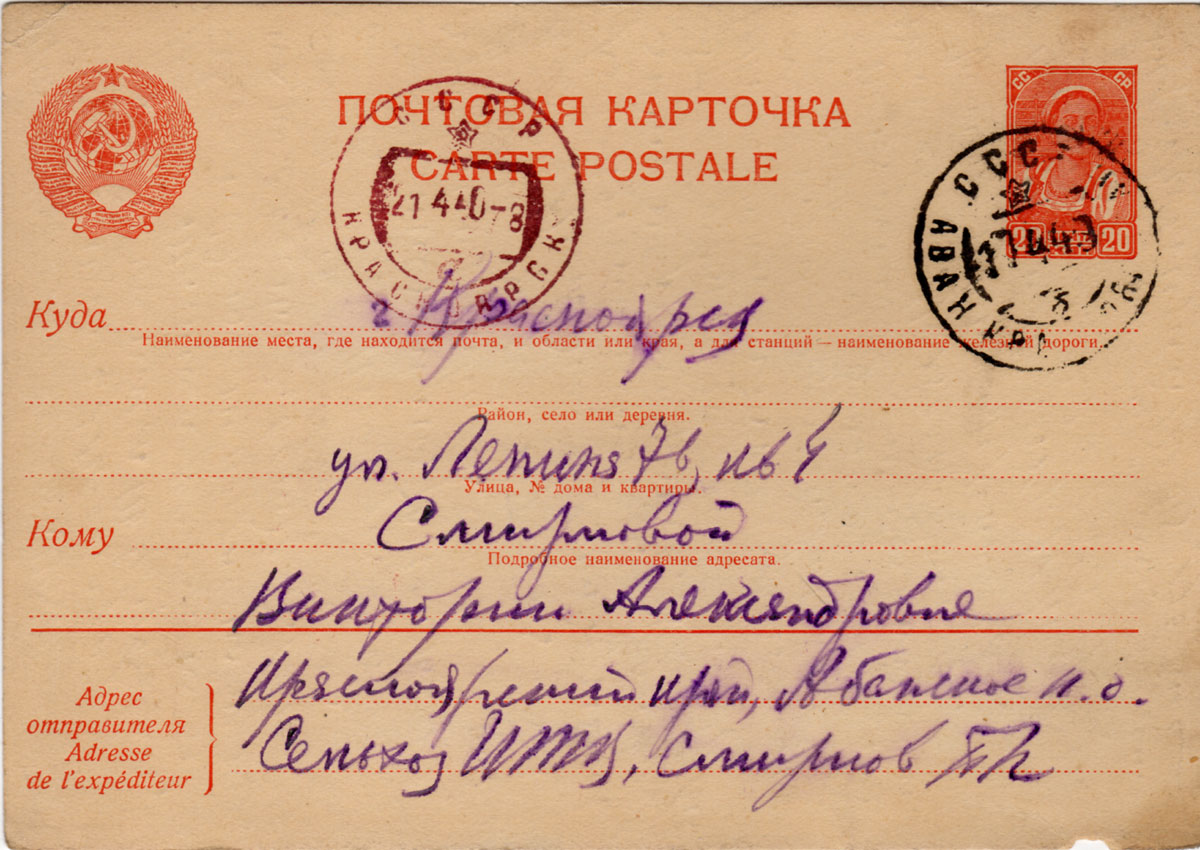 ПОЧТОВАЯ КАРТОЧКА
CARTE POSTALE
СССР
21 4 40-8
КРАСНОЯРСК
СС СР
20 20
СССР
АБАН КРА
Куда г. Красноярск
Наименование места, где находится почта, и области или края, а для станций — наименование железной дороги.
Район, село или деревня.
ул. Ленина 76, кв 4
Улица, № дома и квартиры.
Кому Смирновой
Подробное наименование адресата.
Виктории Александровне
Адрес отправителя
Adresse de l'expéditeur
Красноярский край, Абанское п. о.
Сельхоз ИТК, Смирнов